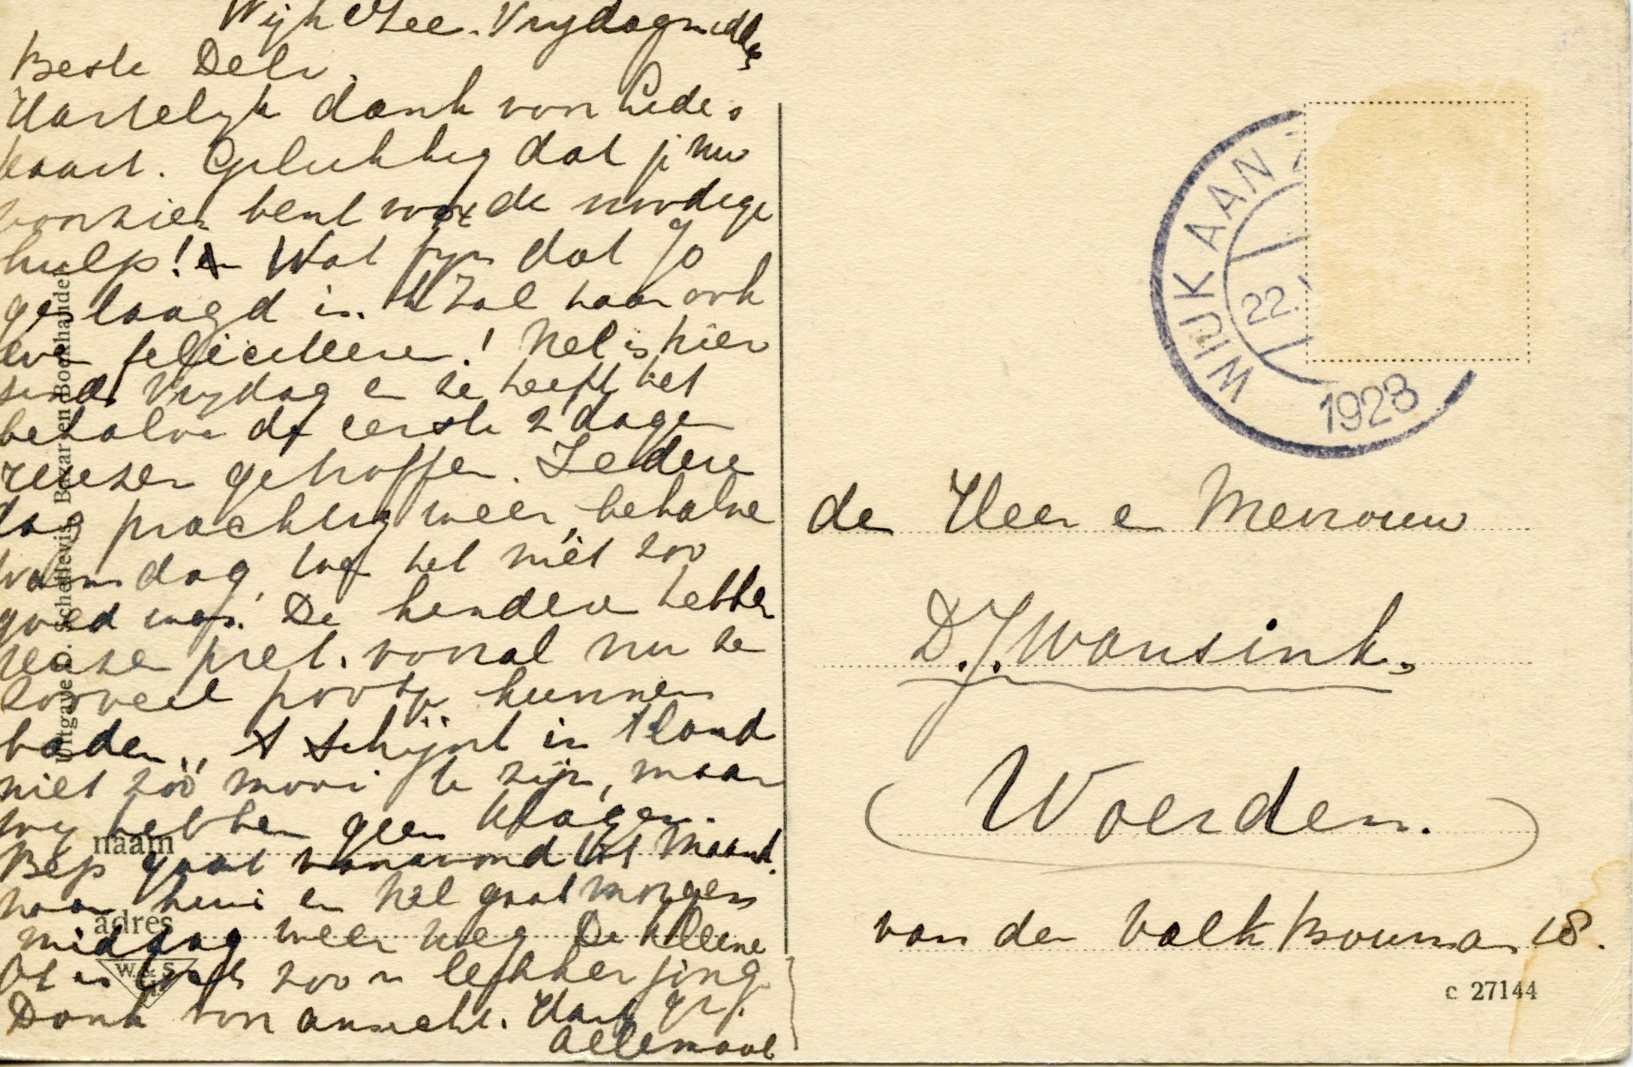 Wijk a Zee. Vrydagmidd
Beste Delv.
Hartelyk dank von
kaart. Gelukkig dat je nu
voorzien bent voor de noodige
hulp! Wat fyn dat Jo
geslaagd is. Ik zal haar ook
even feliciteeren! Nel is hier
sinds Vrydag en ze heeft het
behalve de eerste 2 dagen
reuzen getroffen. Iedere
dag prachtig weer, behalve
vandaag, toen het niet zoo
goed was. De kinderen hebben
reuze pret. vooral nu ze
zooveel pootje kunnen
baden. 't schijnt in 't land
niet zóó mooi te zijn, maar
wy hebben geen klagen.
Bep gaat vanavond tot Maand.
naar huis en Nel gaat morgen
middag weer weg. De kleine
Ot is toch zoo'n lekker jong.
Dank von ansicht. Hart. Gr.
Allemaal
Uitgave D. Schellevis, Bazar en Boekhandel
naam
adres
W. & S.
WIJK AAN Z
22.
1928
den Heer en Mevrouw
D.J. Wansink.
Woerden.
van der Valk Bouman 18.
c 27144